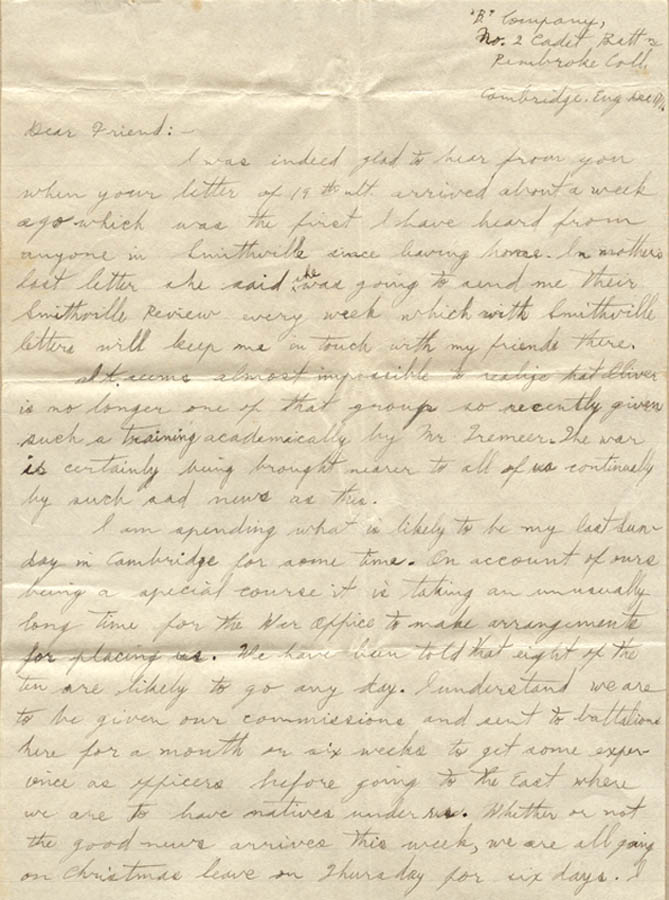 "B" Company,
No. 2 Cadet Batt'n
Pembroke Coll.
Cambridge. Eng Dec
Dear Friend:-
I was indeed glad to hear from you
when your letter of 19th ult. arrived about a week
ago which was the first I have heard from
anyone in Smithville since leaving home. In mothers
last letter she said she was going to send me their
Smithville Review every week which with Smithville
letters will keep me in touch with my friends there.
It seems almost impossible to realize that Oliver
is no longer one of that group so recently given
such a training academically by Mr Tremeer. The war
is certainly being brought nearer to all of us continually
by such sad news as this.
I am spending what is likely to be my last Sun-
day in Cambridge for some time. On account of ours
being a special course it is taking an unusually
long time for the War Office to make arrangements
for placing us. We have been told that eight of the
ten are likely to go any day. I understand we are
to be given our commissions and sent to battalions
here for a month or six weeks to get some exper-
ience as officers before going to the East where
we are to have natives under us. Whether or not
the good news arrives this week, we are all going
on Christmas leave on Thursday for six days. I